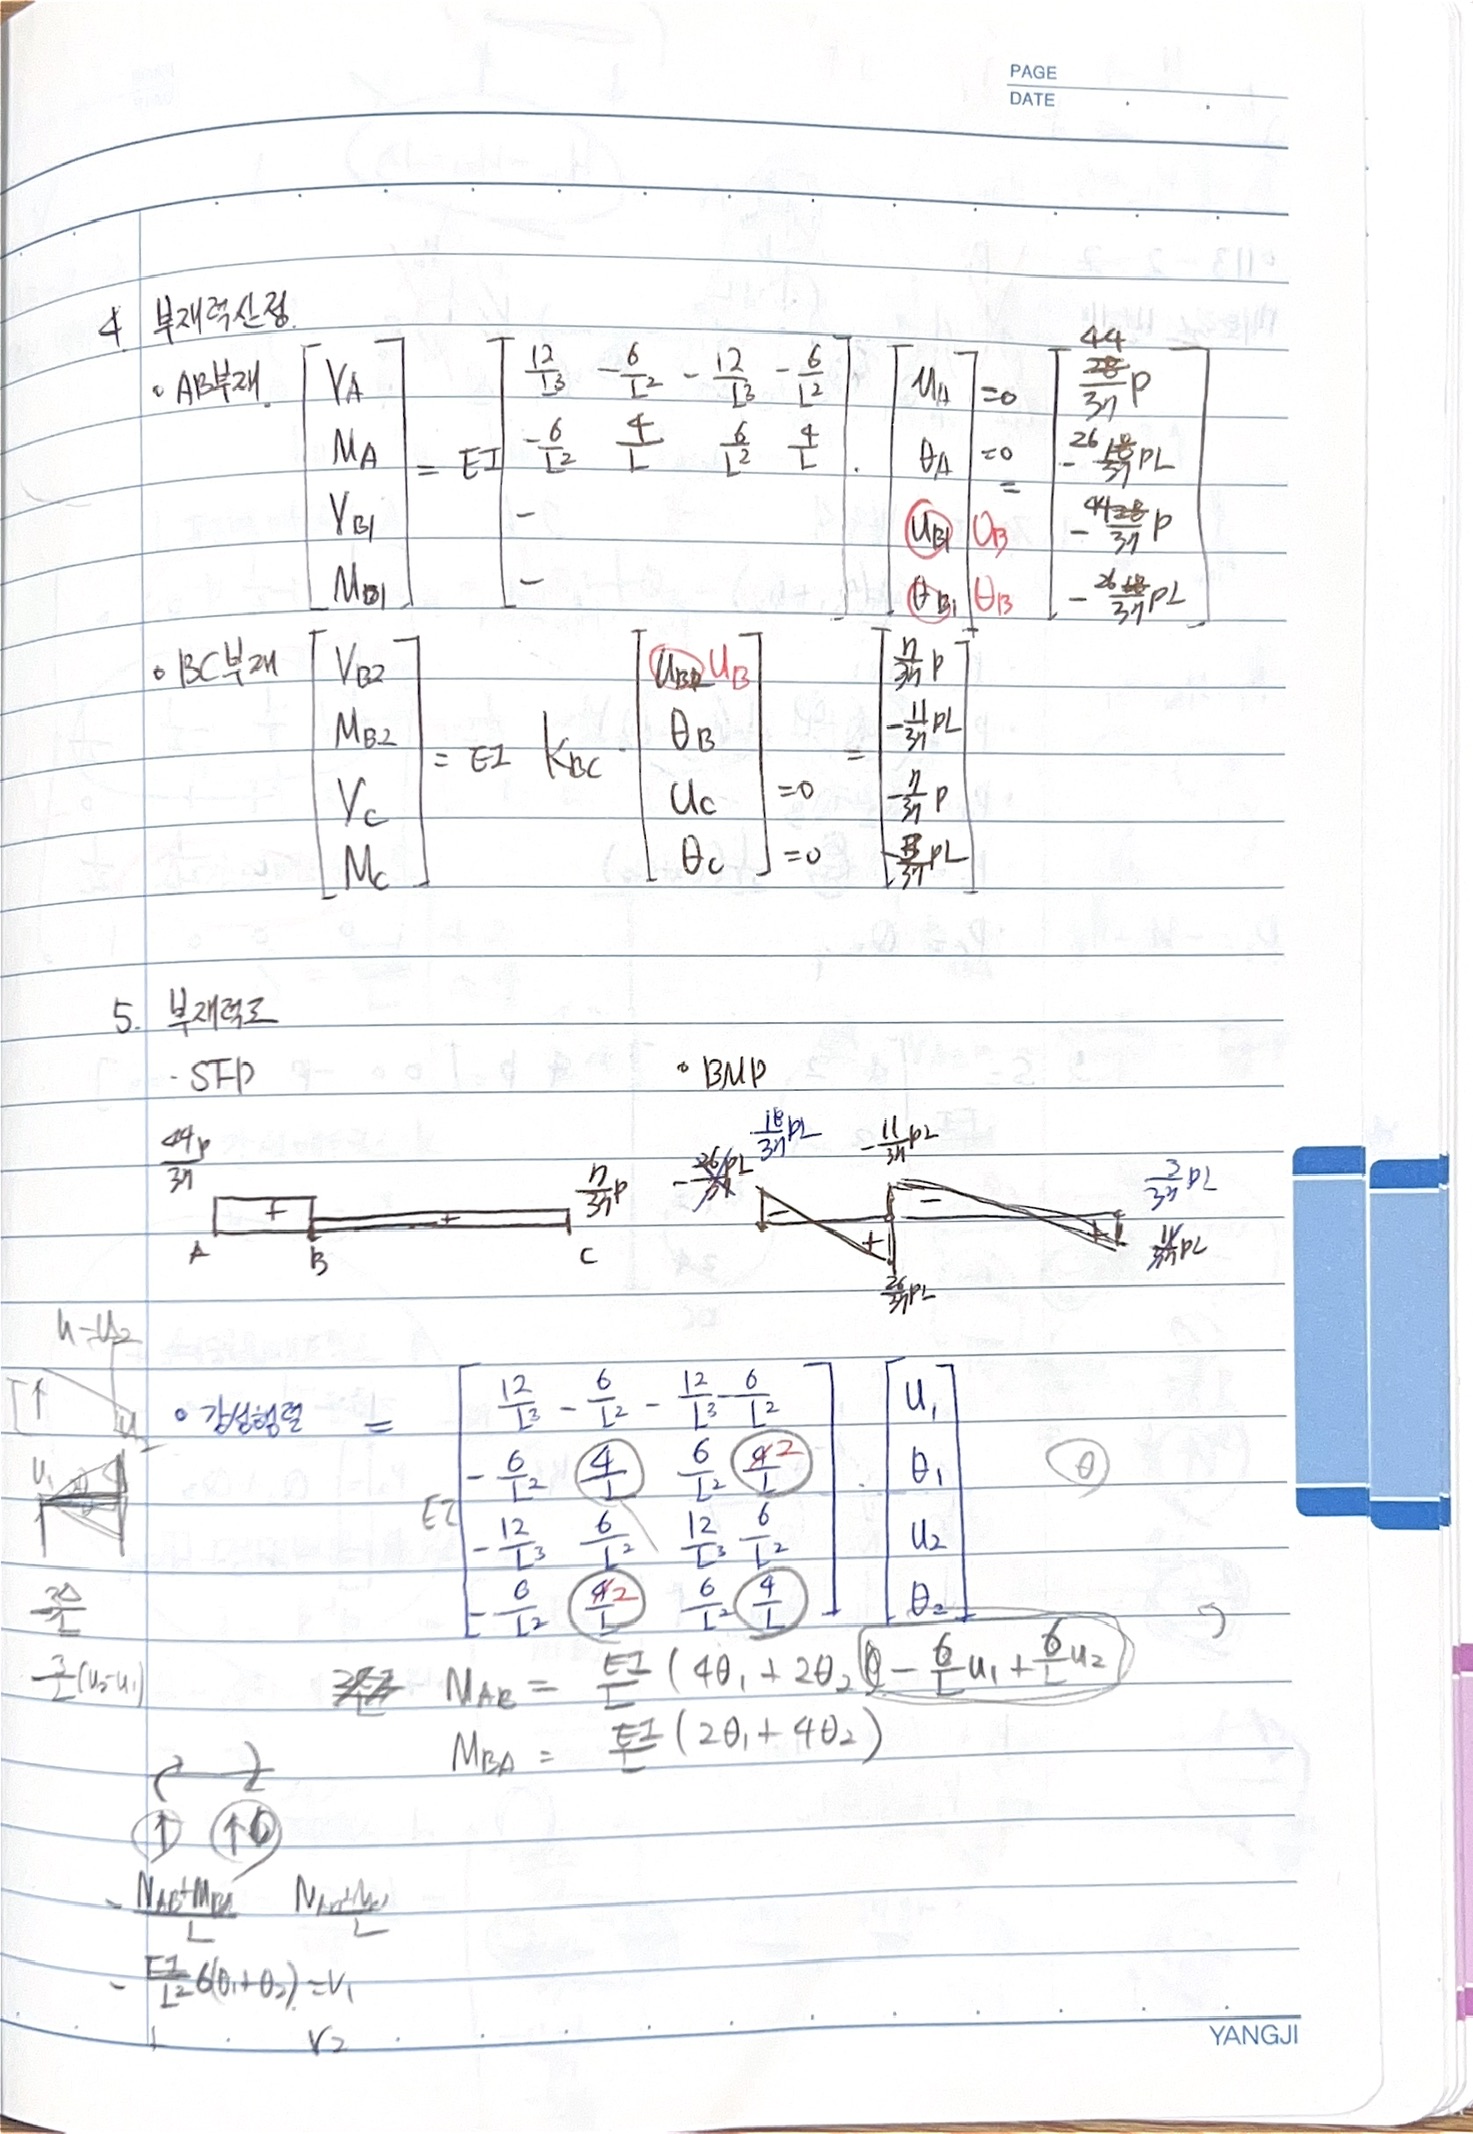 PAGE
DATE
4. 부재력산정.
• AB부재. [V_A M_A V_B1 M_B1] = EI [12/L³ -6/L² -12/L³ -6/L²
-6/L² 4/L 6/L² 4/L
-
-] · [u_A =0 θ_A =0 u_B1 U_B θ_B1 θ_B] = [44/37 P -26/37 PL -44/37 P -26/37 PL]
• BC부재 [V_B2 M_B2 V_C M_C] = EI K_BC · [u_B2 U_B θ_B u_C =0 θ_C =0] = [7/37 P -11/37 PL -7/37 P -3/37 PL]
5. 부재력도
· SFD • BMD
44/37 P 7/37 P
A B C
-26/37 PL 18/37 PL -11/37 PL 3/37 PL
+ + - + - +
26/37 PL 11/37 PL
• 강성행렬 = EI [12/L³ -6/L² -12/L³ -6/L²
-6/L² 4/L 6/L² 4 2/L
-12/L³ 6/L² 12/L³ 6/L²
-6/L² 4 2/L 6/L² 4/L] · [u₁ θ₁ u₂ θ₂]
θ
u₁
3Δ/L
-3/L (u₂-u₁)
M_AB = EI/L (4θ₁ + 2θ₂ - 6/L u₁ + 6/L u₂
M_BA = EI/L (2θ₁ + 4θ₂)
- M_AB+M_BA/L
- EI/L² 6(θ₁+θ₂) = V₁
V₂
YANGJI